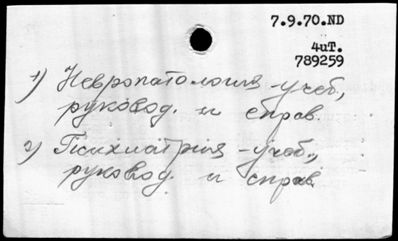 7.9.70.ND
4иТ.
789259
1) Невропатология - учеб.,
руковод. и справ.
2) Психиатрия - учеб.,
руковод. и справ.